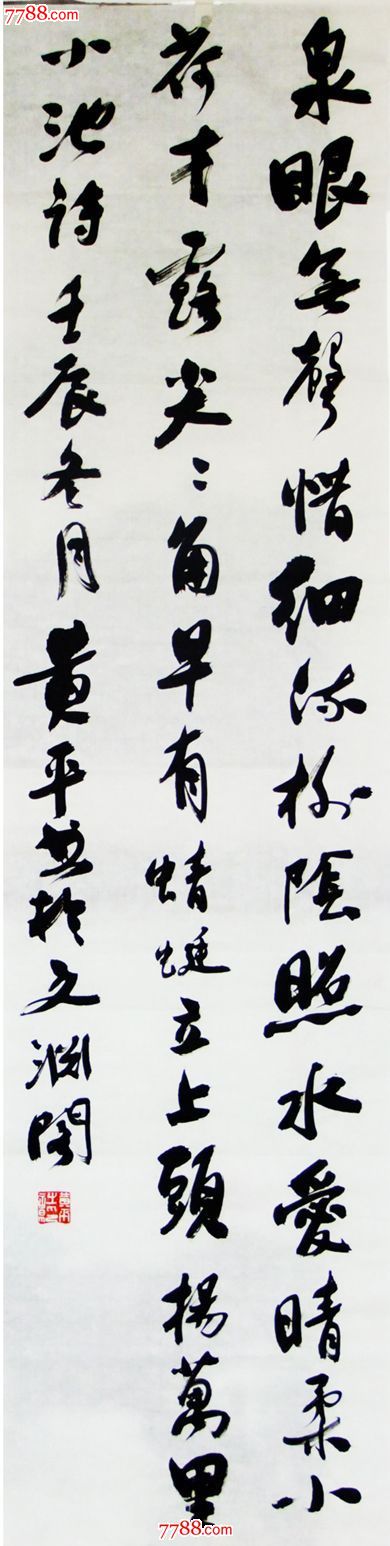 7788.com
泉眼無聲惜細流樹陰照水愛晴柔小
荷才露尖〻角早有蜻蜓立上頭楊萬里
小池詩壬辰冬月黄平書於文淵閣
7788.com